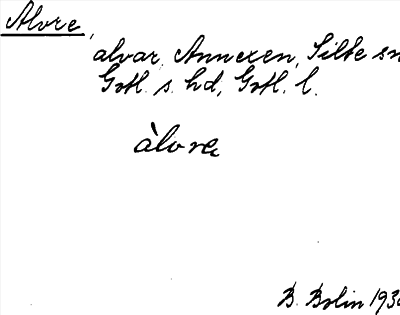 Alvre,
alvar, Annexen, Silte sn
Gotl. s. hd, Gotl. l.
àlvrɐ
B. Bolin 193